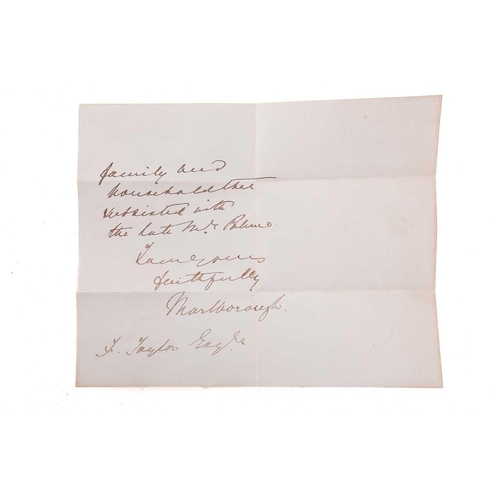 family and
household that
subsisted with
the late Mr.
I am yours
faithfully
Marlborough.
F. Taylor Esqre